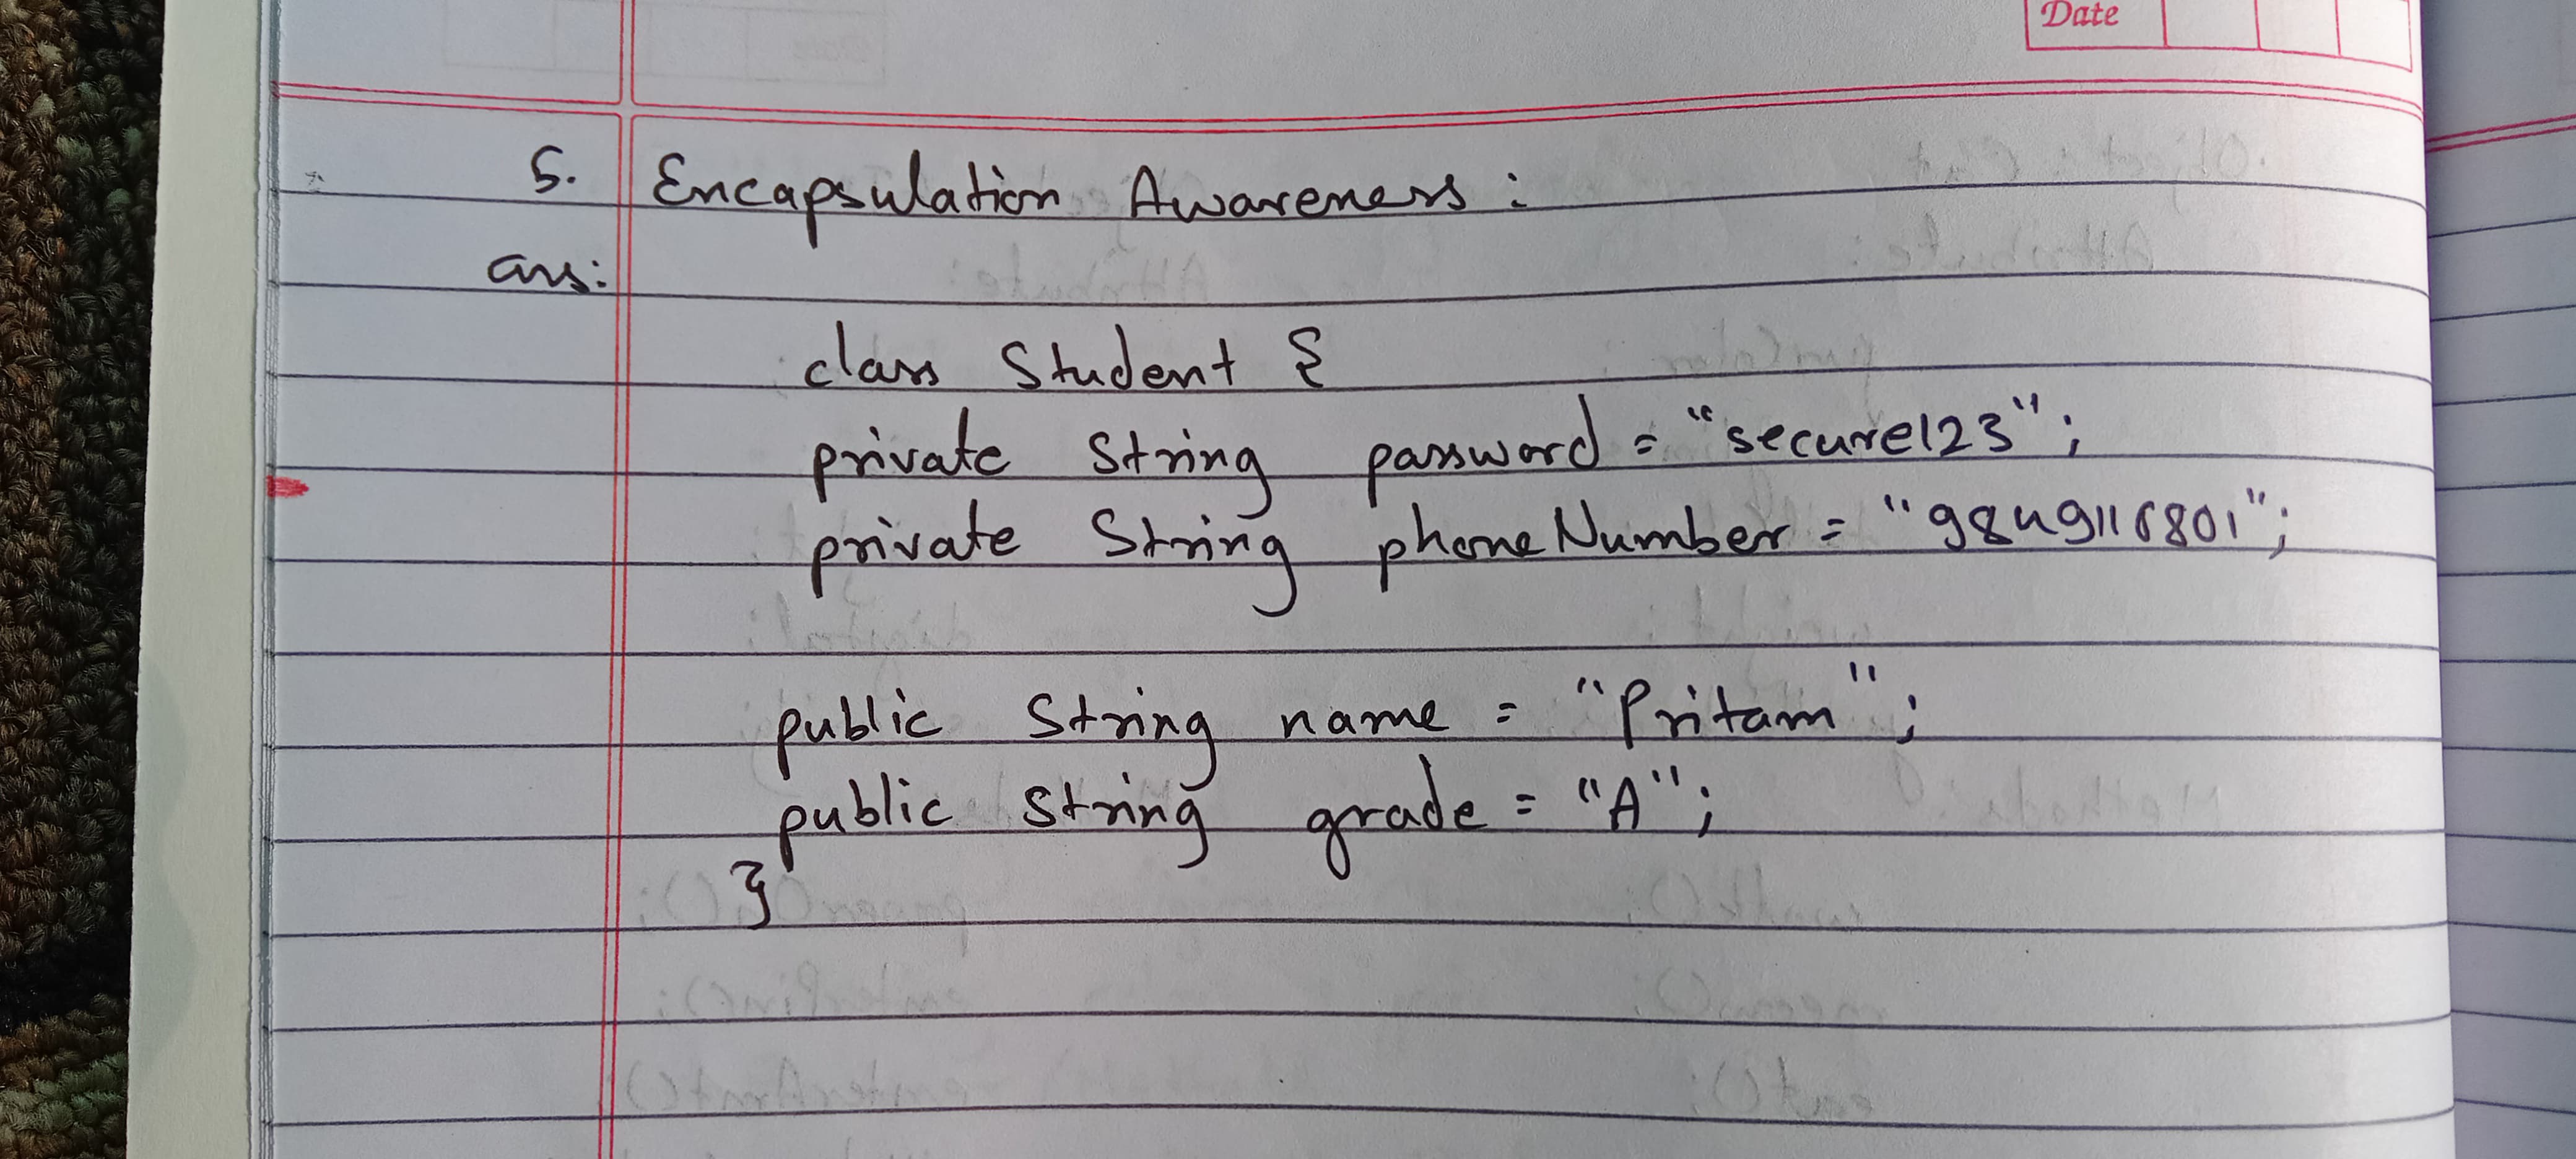 Date
5. Encapsulation Awareness :
ans:
class Student {
private String password = "secure123";
private String phoneNumber = "9849116801";
public String name = "Pritam";
public String grade = "A";
}